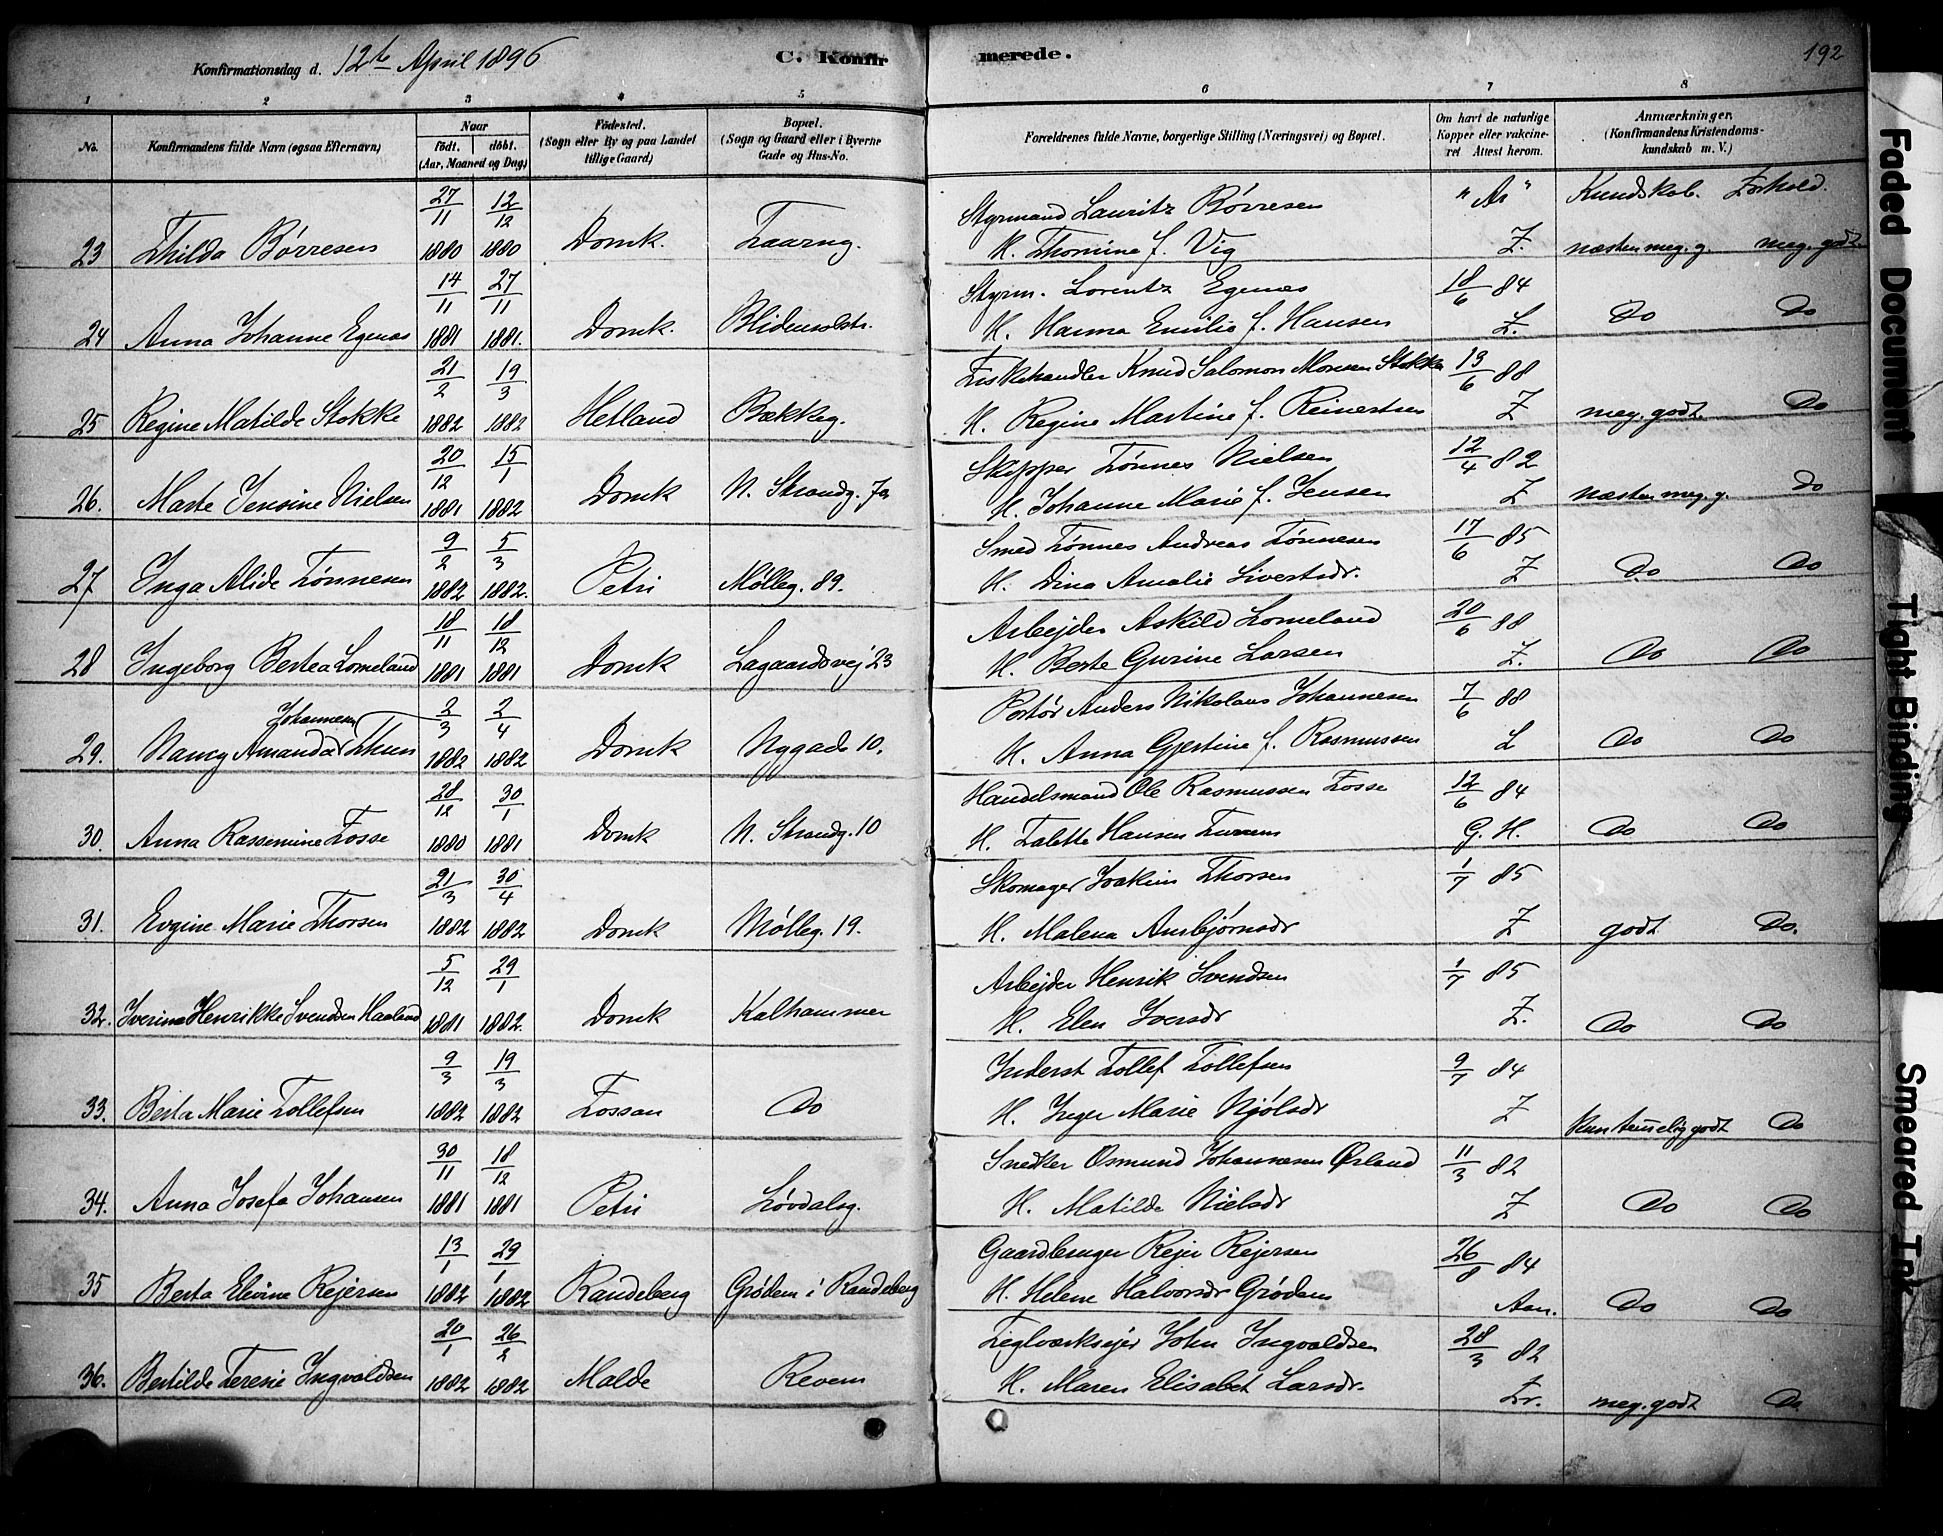 Konfirmationsdag d. 12te April 1896 C. Konfirmerede. 192
1 2 3 4 5 6 7 8
No. Konfirmandens fulde Navn (ogsaa Efternavn) Naar födt. döbt. (Aar, Maaned og Dag) Födested. (Sogn eller By og paa Landet tillige Gaard) Bopæl. (Sogn og Gaard eller i Byerne Gade og Hus-No. Forældrenes fulde Navne, borgerlige Stilling (Næringsvei) og Bopæl. Om havt de naturlige Kopper eller vakcineret Attest herom. Anmærkninger. (Konfirmandens Kristendomskundskab m. V.)
27/11 12/12 Styrmand Lauritz Börresen " Kundskab. Forhold.
23 Thilda Börresen 1880 1880 Domk. Taarng. H. Thomine f. Vig Z. næsten meg. g. meg. godt.
14/11 27/11 Styrm. Lorentz Egenæs 18/6 84
24 Anna Johanne Egenæs 1881 1881. Domk. Blidensolstr. H. Hanna Emilie f. Hansen Z. Do Do
21/2 19/3 Fiskehandler Knud Salomon Monsen Stokke 13/6 88
25 Regine Matilde Stokke 1882 1882 Hetland Bækkeg. H. Regine Martine f. Reinertsen Z meg. godt. Do
20/12 15/1 Skipper Tönnes Nielsen 12/4 82
26. Marte Jensine Nielsen 1881 1882 Domk N. Strandg. 7a H. Johanne Marie f. Jensen Z næsten meg. g. Do
9/2 5/3 Smed Tönnes Andreas Tönnesen 17/6 85
27 Inga Alide Tönnesen 1882 1882. Petri Mölleg. 89. H. Dina Amalie Sivertsdr. Z Do Do
18/11 18/12 Arbejder Askild Lomeland 20/6 88
28 Ingeborg Bertea Lomeland 1881 1881 Domk Lagaardsvej 23 H. Berte Gurine Larsen Z. Do Do
Johannesen 2/3 2/4 Portör Anders Nikolaus Johannesen 7/6 88
29. Nancy Amanda Thun 1882 1882 Domk Nygade 10. H. Anna Gjertine f. Rasmussen L Do Do
28/12 30/1 Handelsmand Ole Rasmussen Fosse 12/6 84
30. Anna Rassemine Fosse 1880 1881 Domk N. Strandg. 10 H. Talette Hansen G. H. Do Do
21/3 30/4 Skomager Joakim Thorsen 1/7 85
31. Evgine Marie Thorsen 1882 1882 Domk Mölleg. 19. H. Malena Ansbjörnsdr Z godt Do.
5/12 29/1 Arbejder Henrik Svendsen 1/7 85
32. Iverine Henrikke Svendsen Haaland 1881 1882. Domk Kalhammer H. Elen Iversdr Z. Do Do
9/3 19/3 Inderst Tollef Tollefsen 9/7 84
33. Berta Marie Tollefsen 1882 1882 Fossan Do H. Inger Marie Njölsdr Z kun temelig godt Do
30/11 18/12 Snedker Osmund Johannesen Örland 11/3 82
34. Anna Josefa Johansen 1881 1881 Petri Lövdalsg. H. Matilde Nielsdr Z Do Do
13/1 29/1 Gaardbruger Rejer Rejersen 26/8 84
35 Berta Elevine Rejersen 1882 1882 Randeberg Grödem i Randeberg H. Helene Halvorsdr Grödem Aan. Do Do
20/1 26/2 Teglværksejer John Ingvaldsen 28/3 82
36. Bertilde Teresie Ingvaldsen 1882 1882 Malde Revem H. Maren Elisabet Larsdr. Zr. meg. godt Do
Faded Document
Tight Binding
Smeared Ink